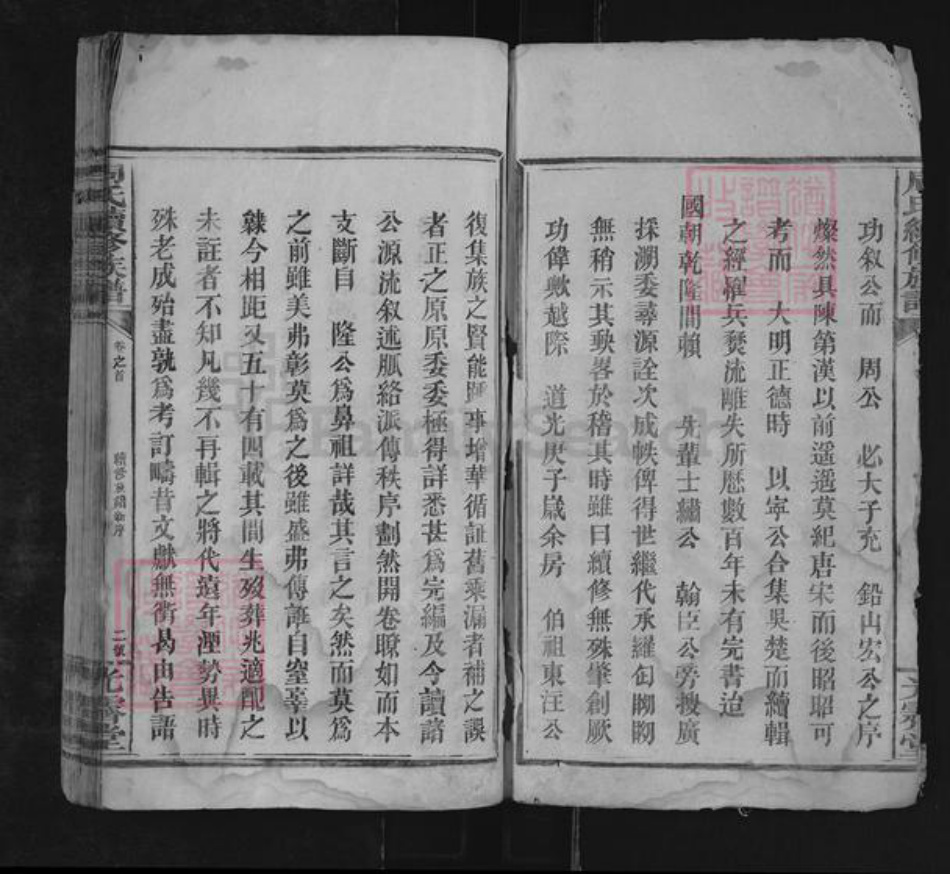 功叙公而　周公　必大子充　鉛山宏公之序
燦然具陳第漢以前遥遥莫紀唐宋而後昭昭可
考而　大明正德時　以寜公合集吳楚而續輯
之經罹兵燹流離失所歷數百年未有完書迨
國朝乾隆間賴　先輩士繡公　翰臣公旁搜廣
採溯委尋源詮次成帙俾得世繼代承羅
無稍示其畧於稽其時雖曰續修無殊肇創厥
功偉歟越際　道光庚子嵗余房　伯祖東汪公
復集族之賢能踵事增華循証舊乘漏者補之誤
者正之原原委委極得詳悉甚爲完編及今讀諸
公源流叙述脈絡派傳秩序劃然開卷瞭如而本
支斷自　隆公爲鼻祖詳哉其言之矣然而莫爲
之前雖美弗彰莫爲之後雖盛弗傳誰自窒辜以
今相距又五十有四載其間生殁葬兆適配之
未註者不知凡幾不再輯之將代遠年湮勢異時
殊老成殆盡孰爲考訂疇昔文獻無徵曷由告語
周氏續修族譜
卷之首
二
光霽堂
周氏續修族譜
光霽堂
FamilySearch